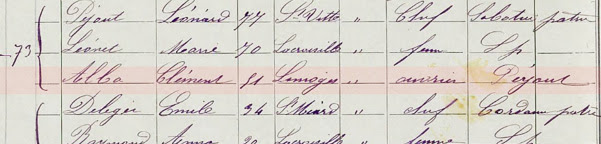 73 Déjout Léonard 77 St Victe " Chef Sabotier patron
Léonet Marie 70 Lacrouzille " femme S p
Alba Clément 51 Limoges " ouvrier Déjout
Deleger Emile 34 St Méard " chef Cordonn patron
Raymond Anna Lacrouzille " femme S p